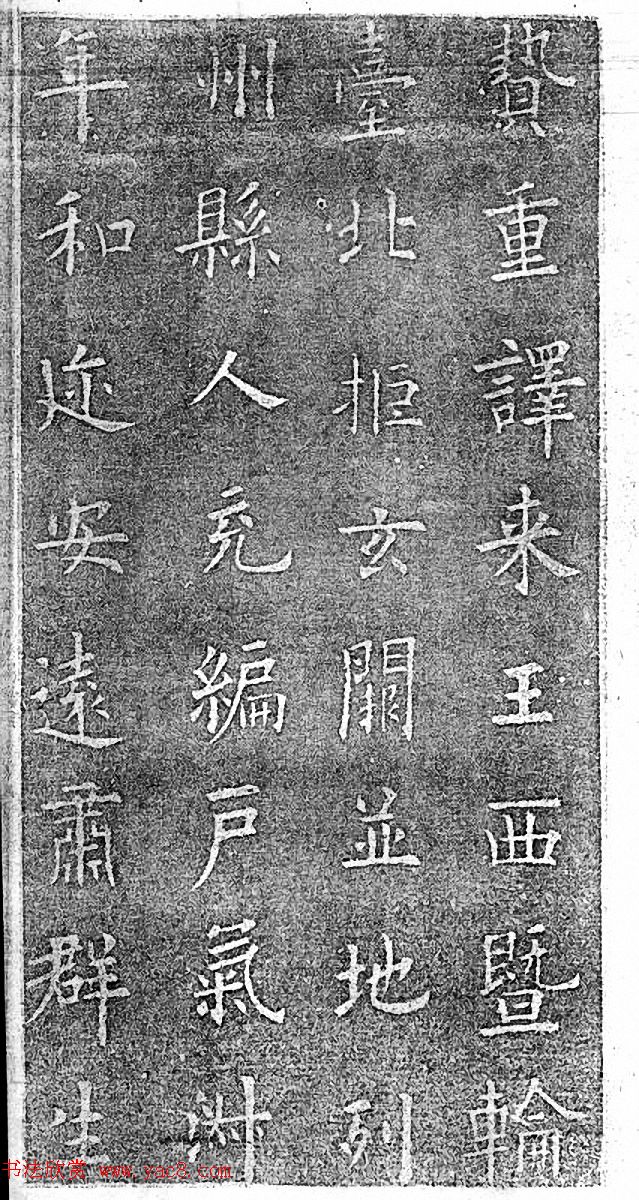 贄重譯来王西暨輪
臺北拒玄闕並地列
州縣人充編戶氣淑
年和迩安遠肅群生
书法欣赏 www.yac8.com